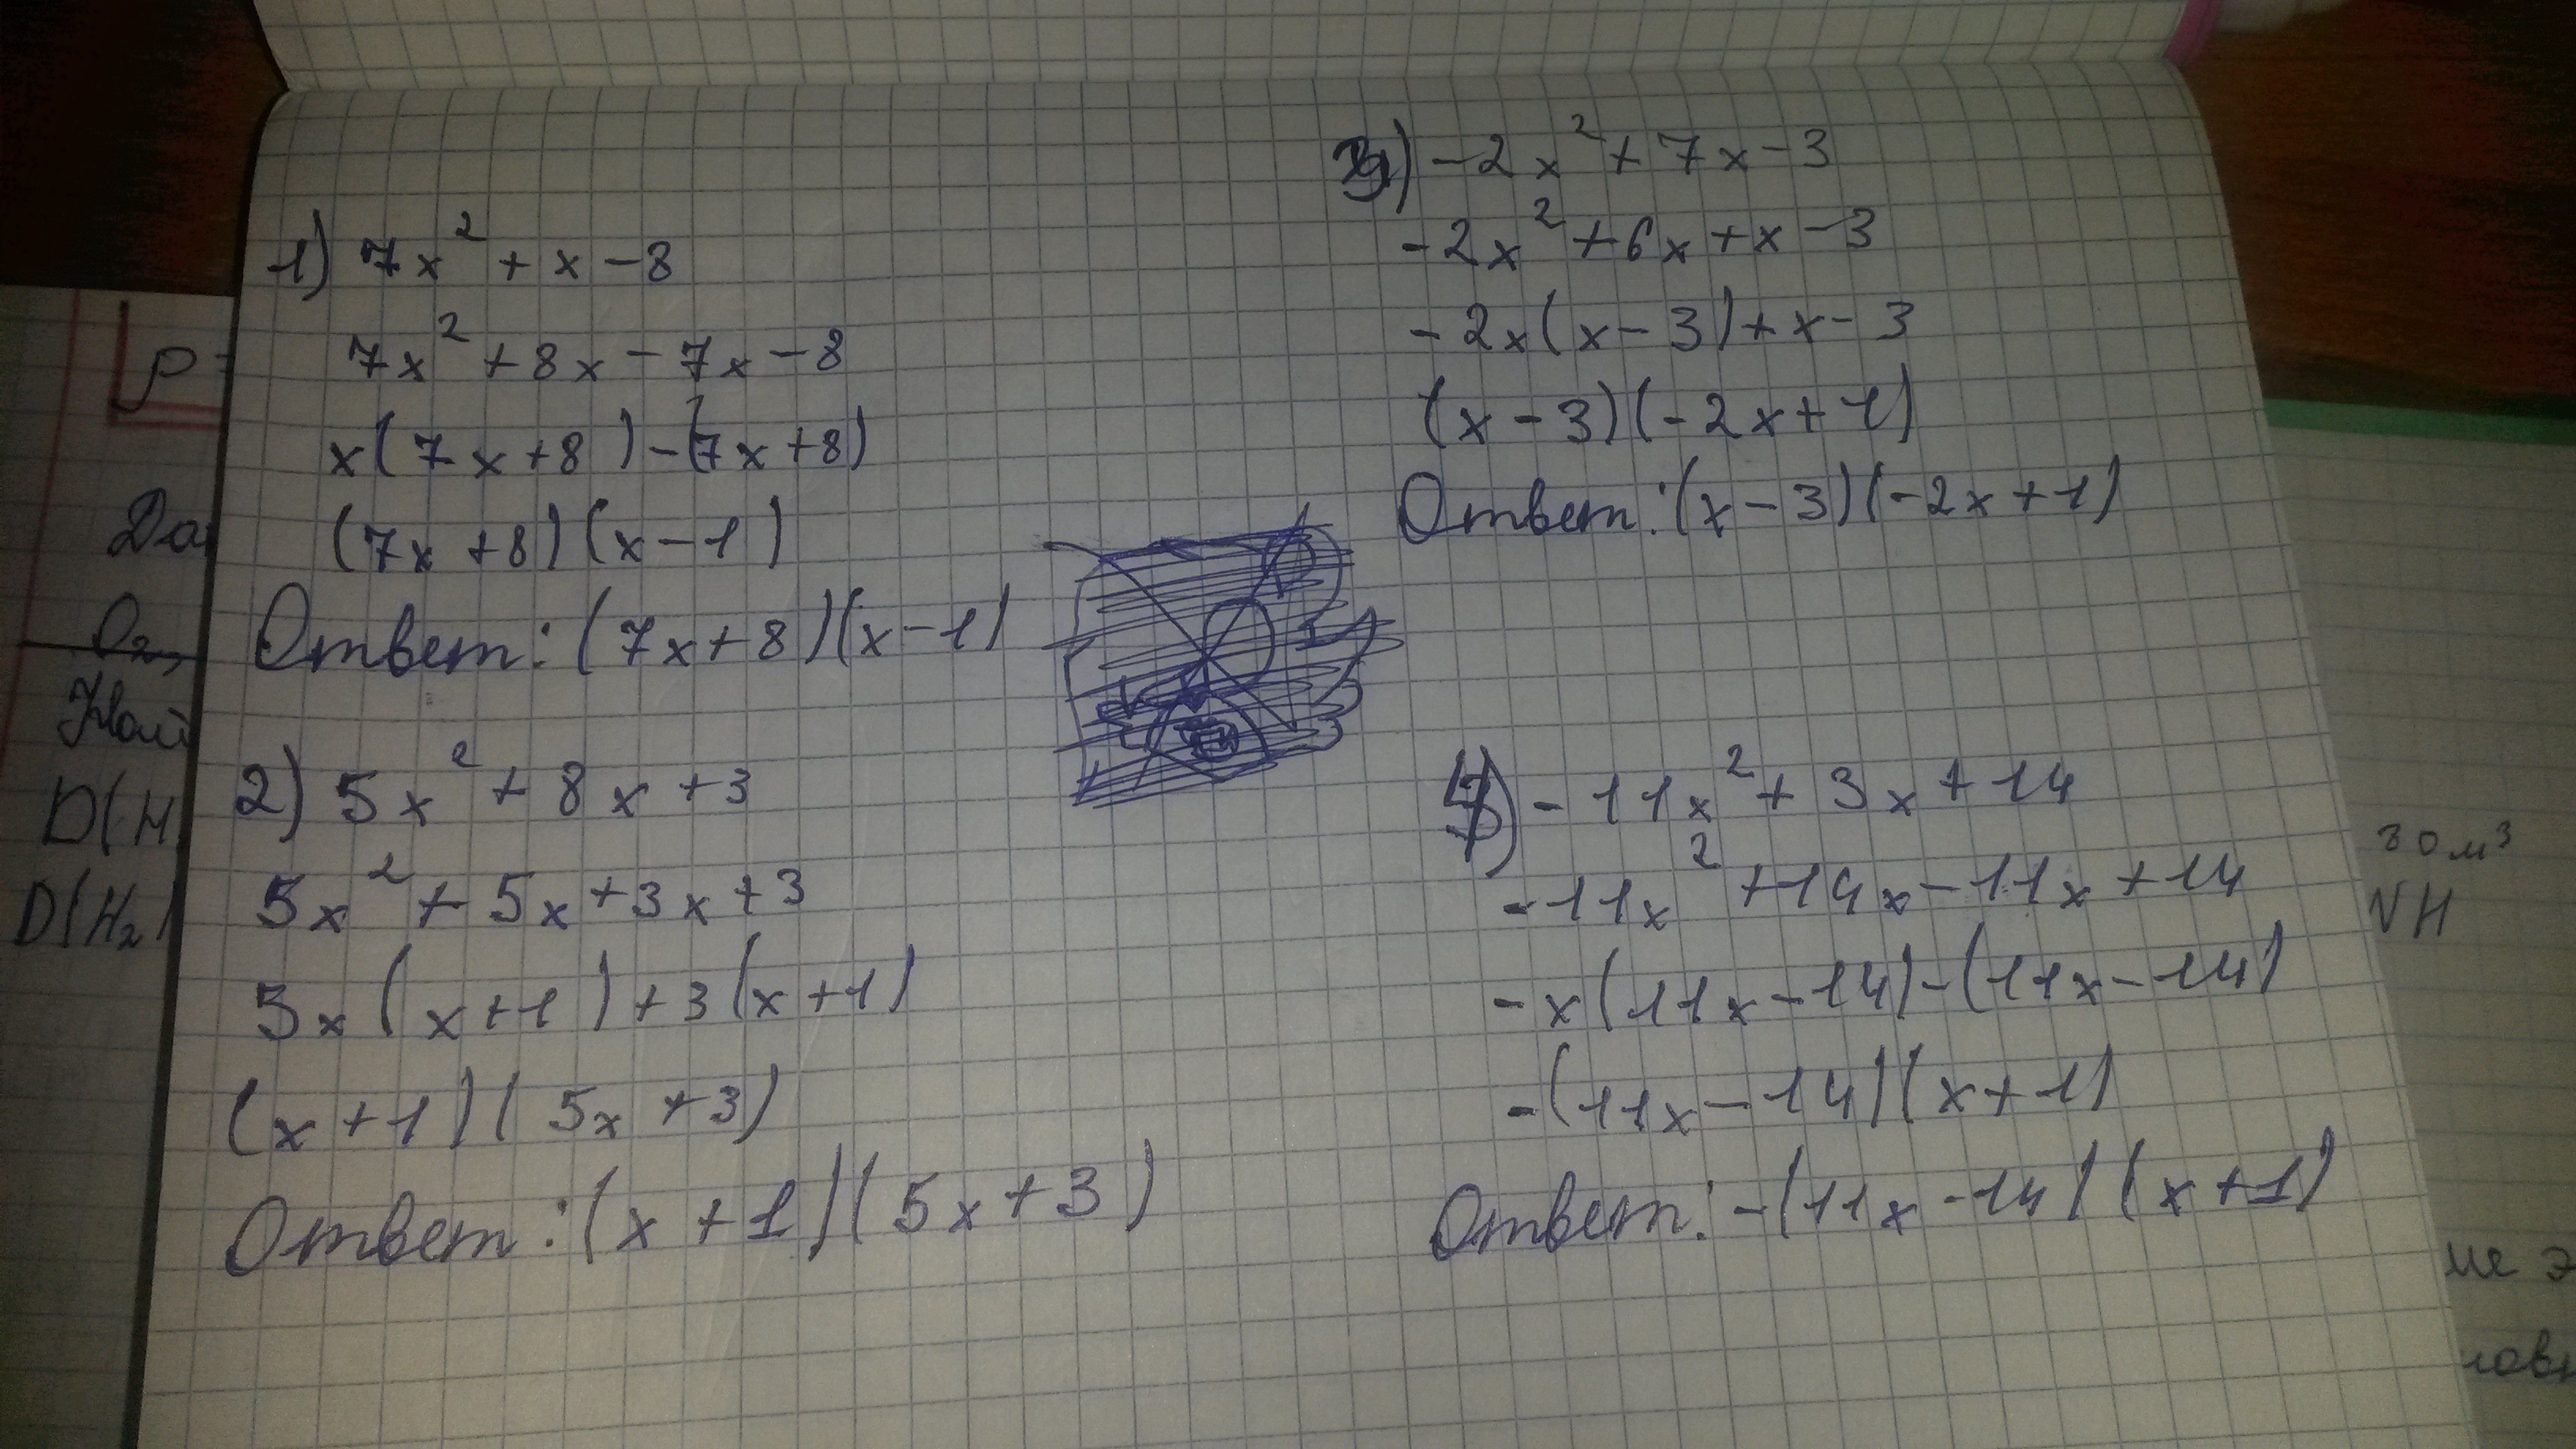 1) 7x² + x - 8
7x² + 8x - 7x - 8
x(7x+8) - (7x+8)
(7x+8)(x-1)
Ответ: (7x+8)(x-1)
2) 5x² + 8x + 3
5x² + 5x + 3x + 3
5x(x+1) + 3(x+1)
(x+1)(5x+3)
Ответ: (x+1)(5x+3)
3) -2x² + 7x - 3
-2x² + 6x + x - 3
-2x(x-3) + x - 3
(x-3)(-2x+1)
Ответ: (x-3)(-2x+1)
4) -11x² + 3x + 14
-11x² + 14x - 11x + 14
-x(11x-14) - (11x-14)
-(11x-14)(x+1)
Ответ: -(11x-14)(x+1)
D(H
D(H₂)
30 м³
NH